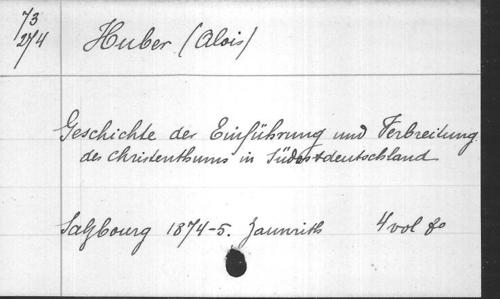 73
274
Huber (Alois)
Geschichte der Einführung und Verbreitung
des Christenthums in Südostdeutschland
Salzbourg 1874-5. Zaunrith 4 vol 8o